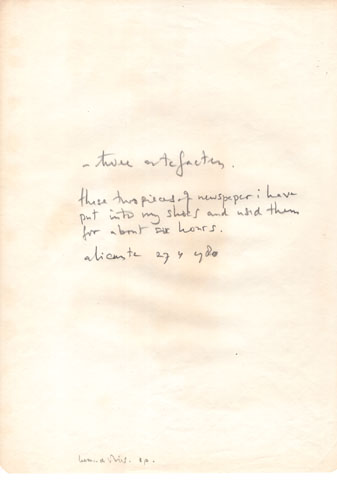 - three artefacten.
these two pieces of newspaper i have
put into my shoes and used them
for about six hours.
alicante 27 4 1980